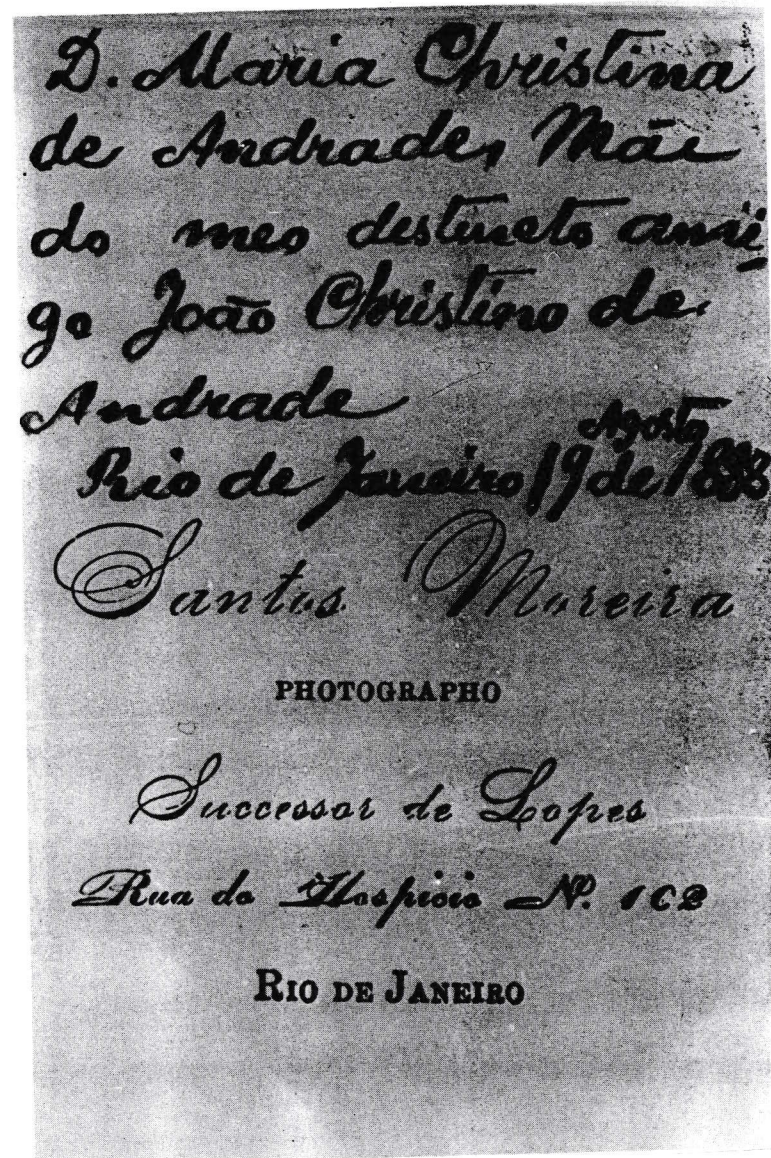 D. Maria Christina
de Andrade, Mãe
do meo destincto ami-
go João Christino de
Andrade
Agosto
Rio de Janeiro 19 de 1888
Santos Moreira
PHOTOGRAPHO
Successor de Lopes
Rua do Hospicio Nº. 102
RIO DE JANEIRO